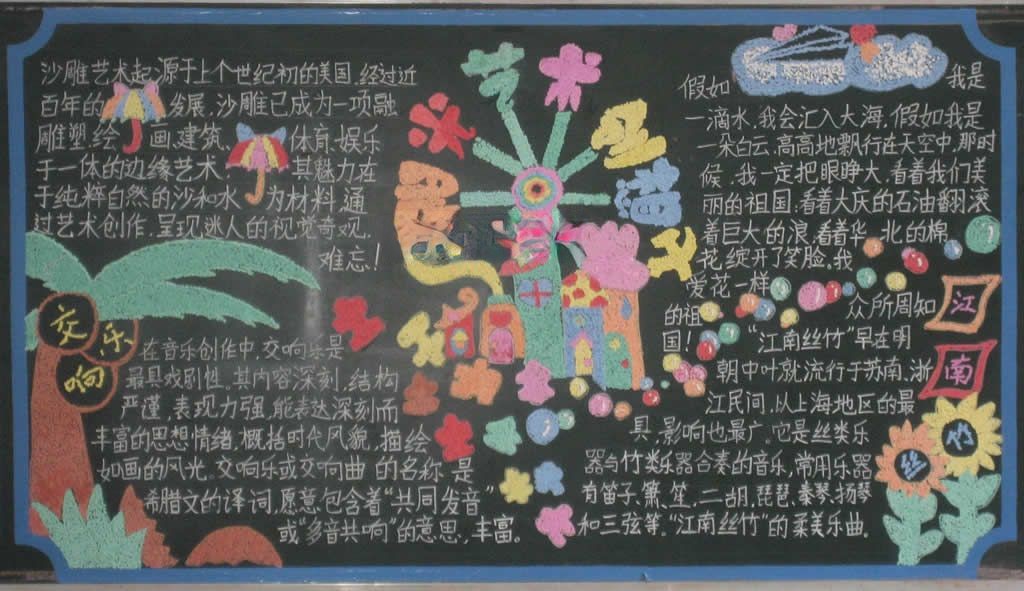 艺术
沙雕艺术起源于上个世纪初的美国,经过近
百年的发展,沙雕已成为一项融
雕塑、绘画、建筑、体育、娱乐
于一体的边缘艺术,其魅力在
于纯粹自然的沙和水为材料,通
过艺术创作,呈现迷人的视觉奇观,
难忘!
交响乐
在音乐创作中,交响乐是
最具戏剧性,其内容深刻,结构
严谨,表现力强,能表达深刻而
丰富的思想情绪,概括时代风貌,描绘
如画的风光,交响乐或交响曲的名称是
希腊文的译词,愿意包含着“共同发音”
或“多音共响”的意思,丰富。
假如我是
一滴水,我会汇入大海,假如我是
一朵白云,高高地飘行在天空中,那时
候,我一定把眼睁大,看着我们美
丽的祖国:看着大庆的石油翻滚
着巨大的浪,看着华北的棉
花绽开了笑脸,我
爱花一样
的祖
国!
江南丝竹
众所周知
“江南丝竹”早在明
朝中叶就流行于苏南、浙
江民间,以上海地区的最
具,影响也最广。它是丝类乐
器与竹类乐器合奏的音乐,常用乐器
有笛子、箫、笙、二胡、琵琶、秦琴、扬琴
和三弦等。“江南丝竹”的柔美乐曲。